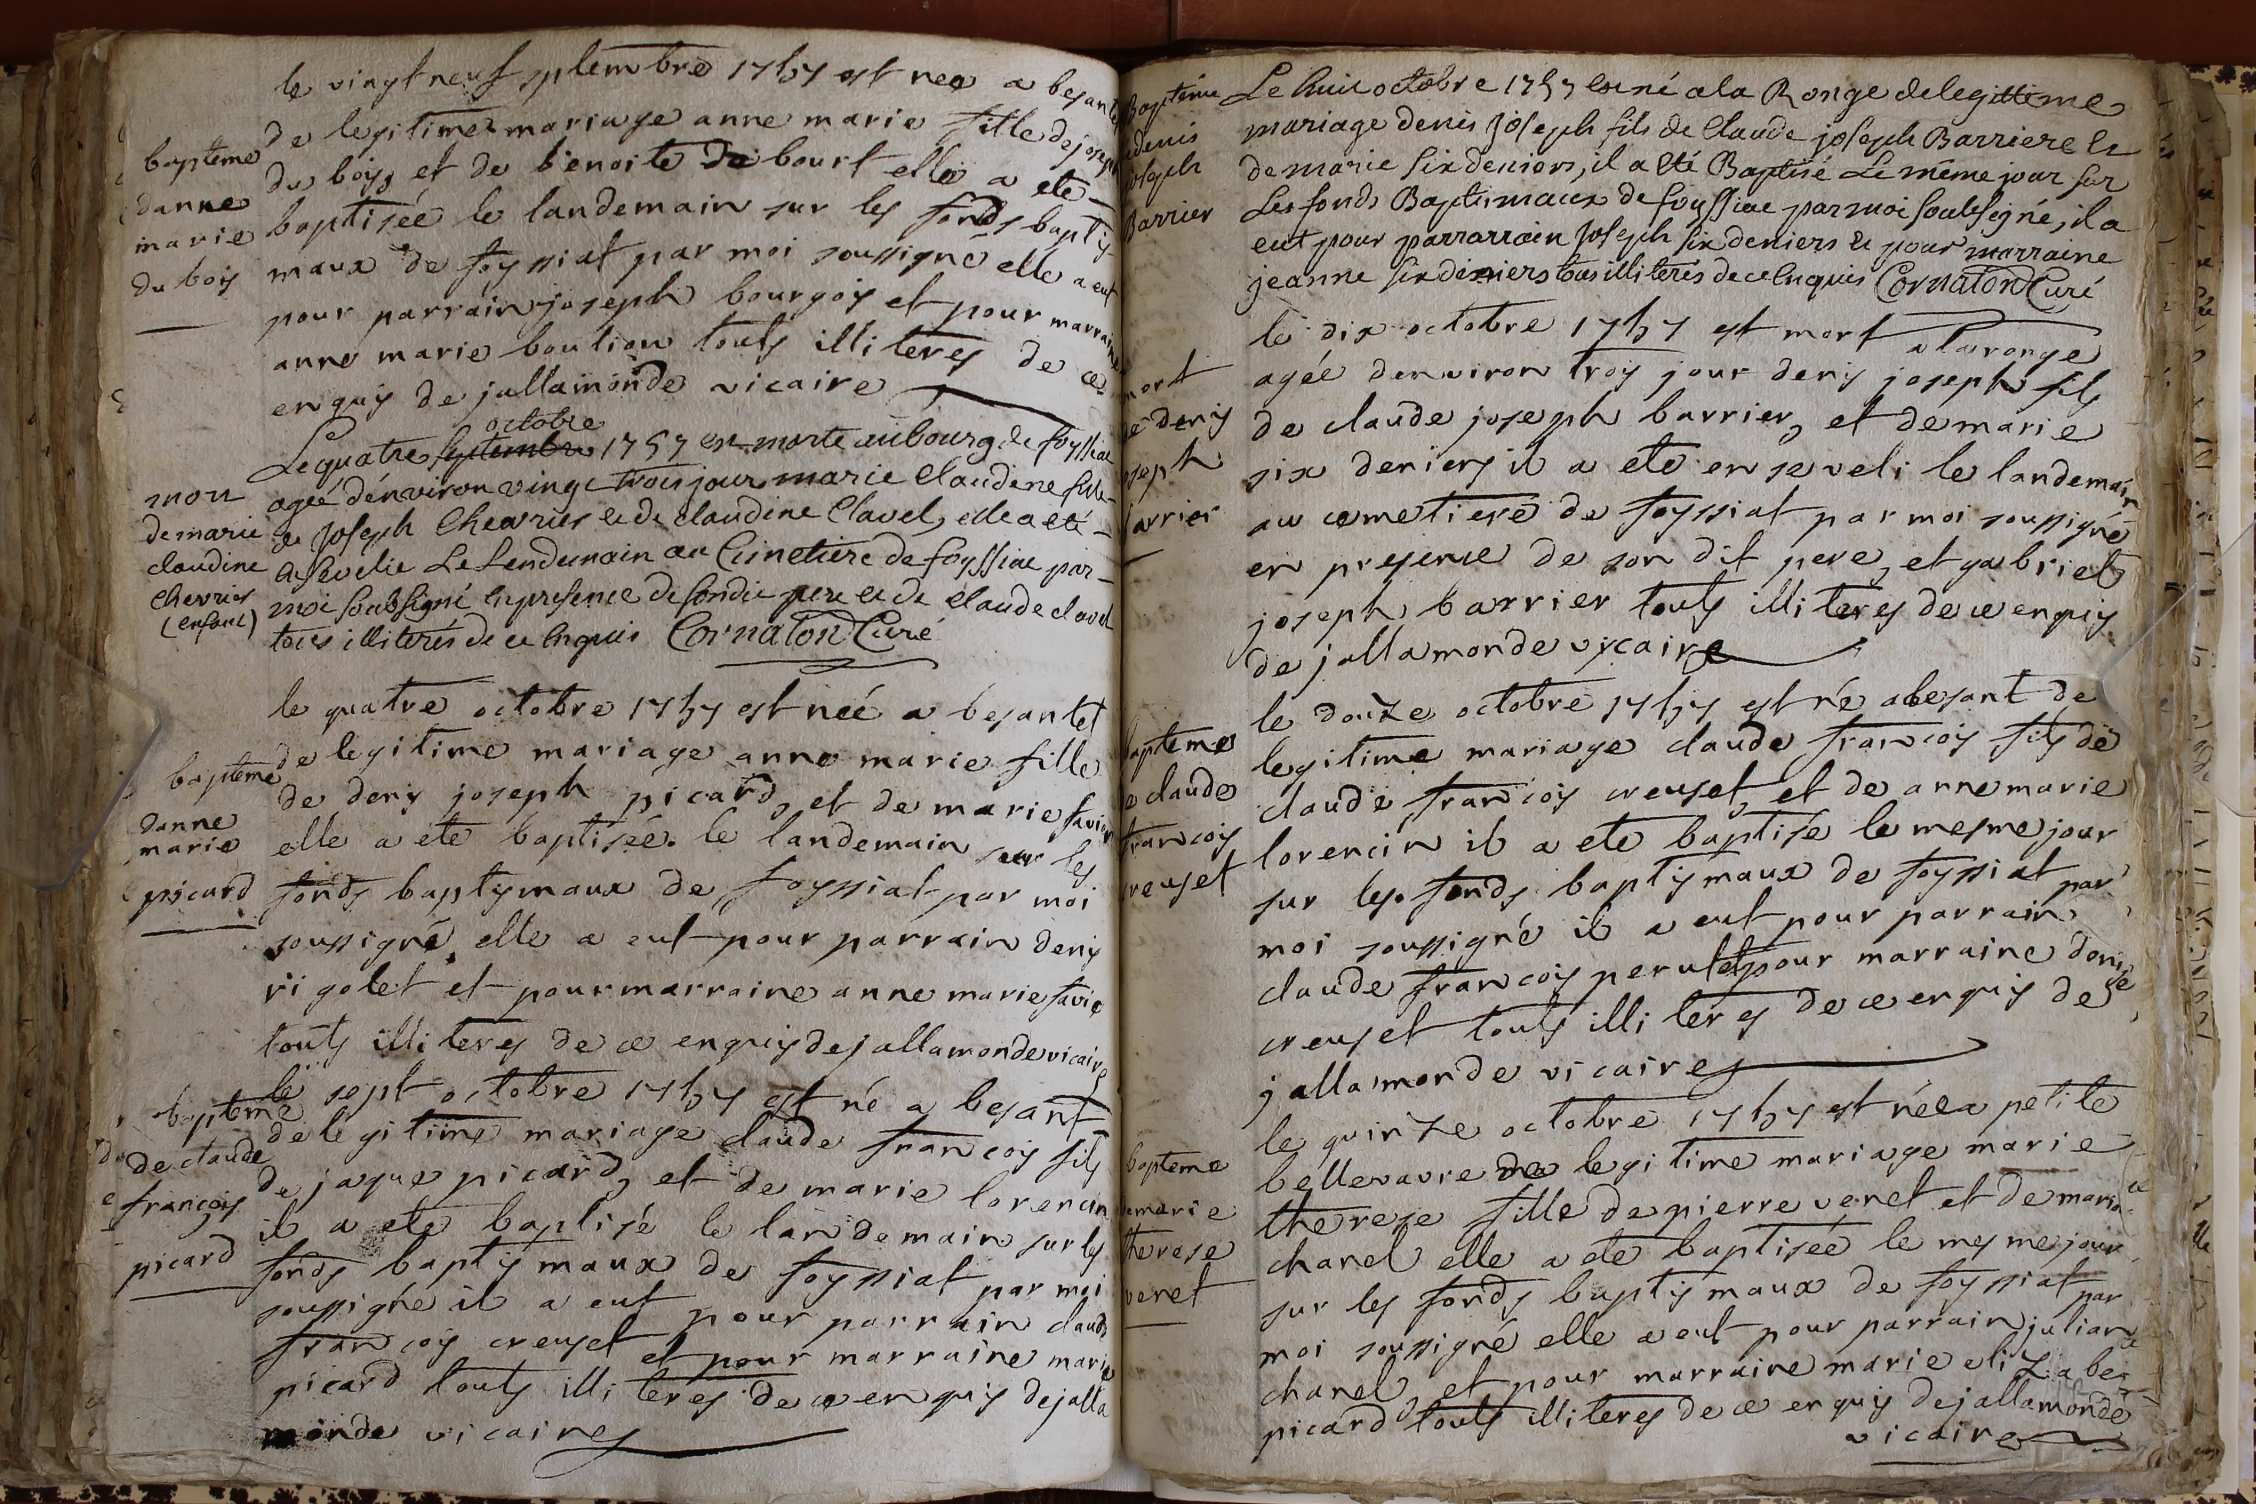 le vingt neuf septembre 1757 est nee a besantet
bapteme
danne
marie
du bois
de legitime mariage anne marie fille de joseph
du bois et de benoite de bourt elle a ete
baptisée le landemain sur les fonds baptis
maux de foyssiat par moi soussigné elle a eut
pour parrain joseph bourgois et pour marraine
anne marie boulion touts illiteres de ce
enquis de jallamonde vicaire
octobre
Le quatre septembre 1757 est morte au bourg de foyssiat
mort
de marie
claudine
chevrier
(enfant)
ageé d'énviron vingt trois jour marie Claudine fille
de Joseph Chevrier et de Claudine Clavel, elle a eté
Ensevelie Le Lendemain au Cimetiere de foyssiat par
moi soubsigné En presence de son dit pere et de Claude clavel
tous illiterés de ce Enquis Cornaton Curé
le quatre octobre 1757 est neé a besantet
bapteme
danne
marie
picard
de legitime mariage anne marie fille
de denis joseph picard, et de marie favier
elle a ete baptisée le landemain sur les
fonds baptismaux de foyssiat par moi
soussigné elle a eut pour parrain denis
rigolet et pour marraine anne marie favie
touts illiteres de ce enquis de jallamonde vicaire
le sept octobre 1757 est né a besant
bapteme
de claude
françois
picard
de legitime mariage claude francois fils
de jaque picard, et de marie lorencin
il a ete baptisé le landemain sur les
fonds baptismaux de foyssiat par moi
soussigné il a eut pour parrain claude
francois creuset et pour marraine marie
picard touts illiteres de ce enquis de jalla
monde vicaire
Bapteme
denis
joseph
Barrier
Le huit octobre 1757 est né a la Ronge de legittime
mariage denis Joseph fils de Claude joseph Barriere et
de marie six deniers, il a eté Baptisé Le même jour sur
Les fonds Baptismaux de foyssiat par moi soubsigné, il a
eut pour parrarrain Joseph six deniers et pour marraine
jeanne six deniers tous illiterés de ce Enquis Cornaton Curé
le dix octobre 1757 est mort a la ronge
mort
de denis
joseph
barrier
ageé denviron trois jour denis joseph fils
de claude joseph barrier, et de marie
six deniers il a ete enseveli le landemain
au cemetiere de foyssiat par moi soussigné
en presence de son dit pere, et gabriel
joseph barrier touts illiteres de ce enquis
de jallamonde vicaire
le douze octobre 1757 est né a besant de
bapteme
de claude
francois
creuset
legitime mariage claude francois fils de
claude francois creuset, et de anne marie
lorencin il a ete baptisé le mesme jour
sur les fonds baptismaux de foyssiat par
moi soussigné il a eut pour parrain
claude francois perutet pour marraine denise
creuset touts illiteres de ce enquis de
jallamonde vicaire
le quinze octobre 1757 est née a petite
bapteme
de marie
therese
venet
bellevavre de legitime mariage marie
therese fille de pierre venet et de marie
chanel elle a ete baptisée le mesme jour
sur les fonds baptismaux de foyssiat par
moi soussigné elle a eut pour parrain julian
chanel, et pour marraine marie elizabet
picard touts illiteres de ce enquis de jallamonde
vicaire